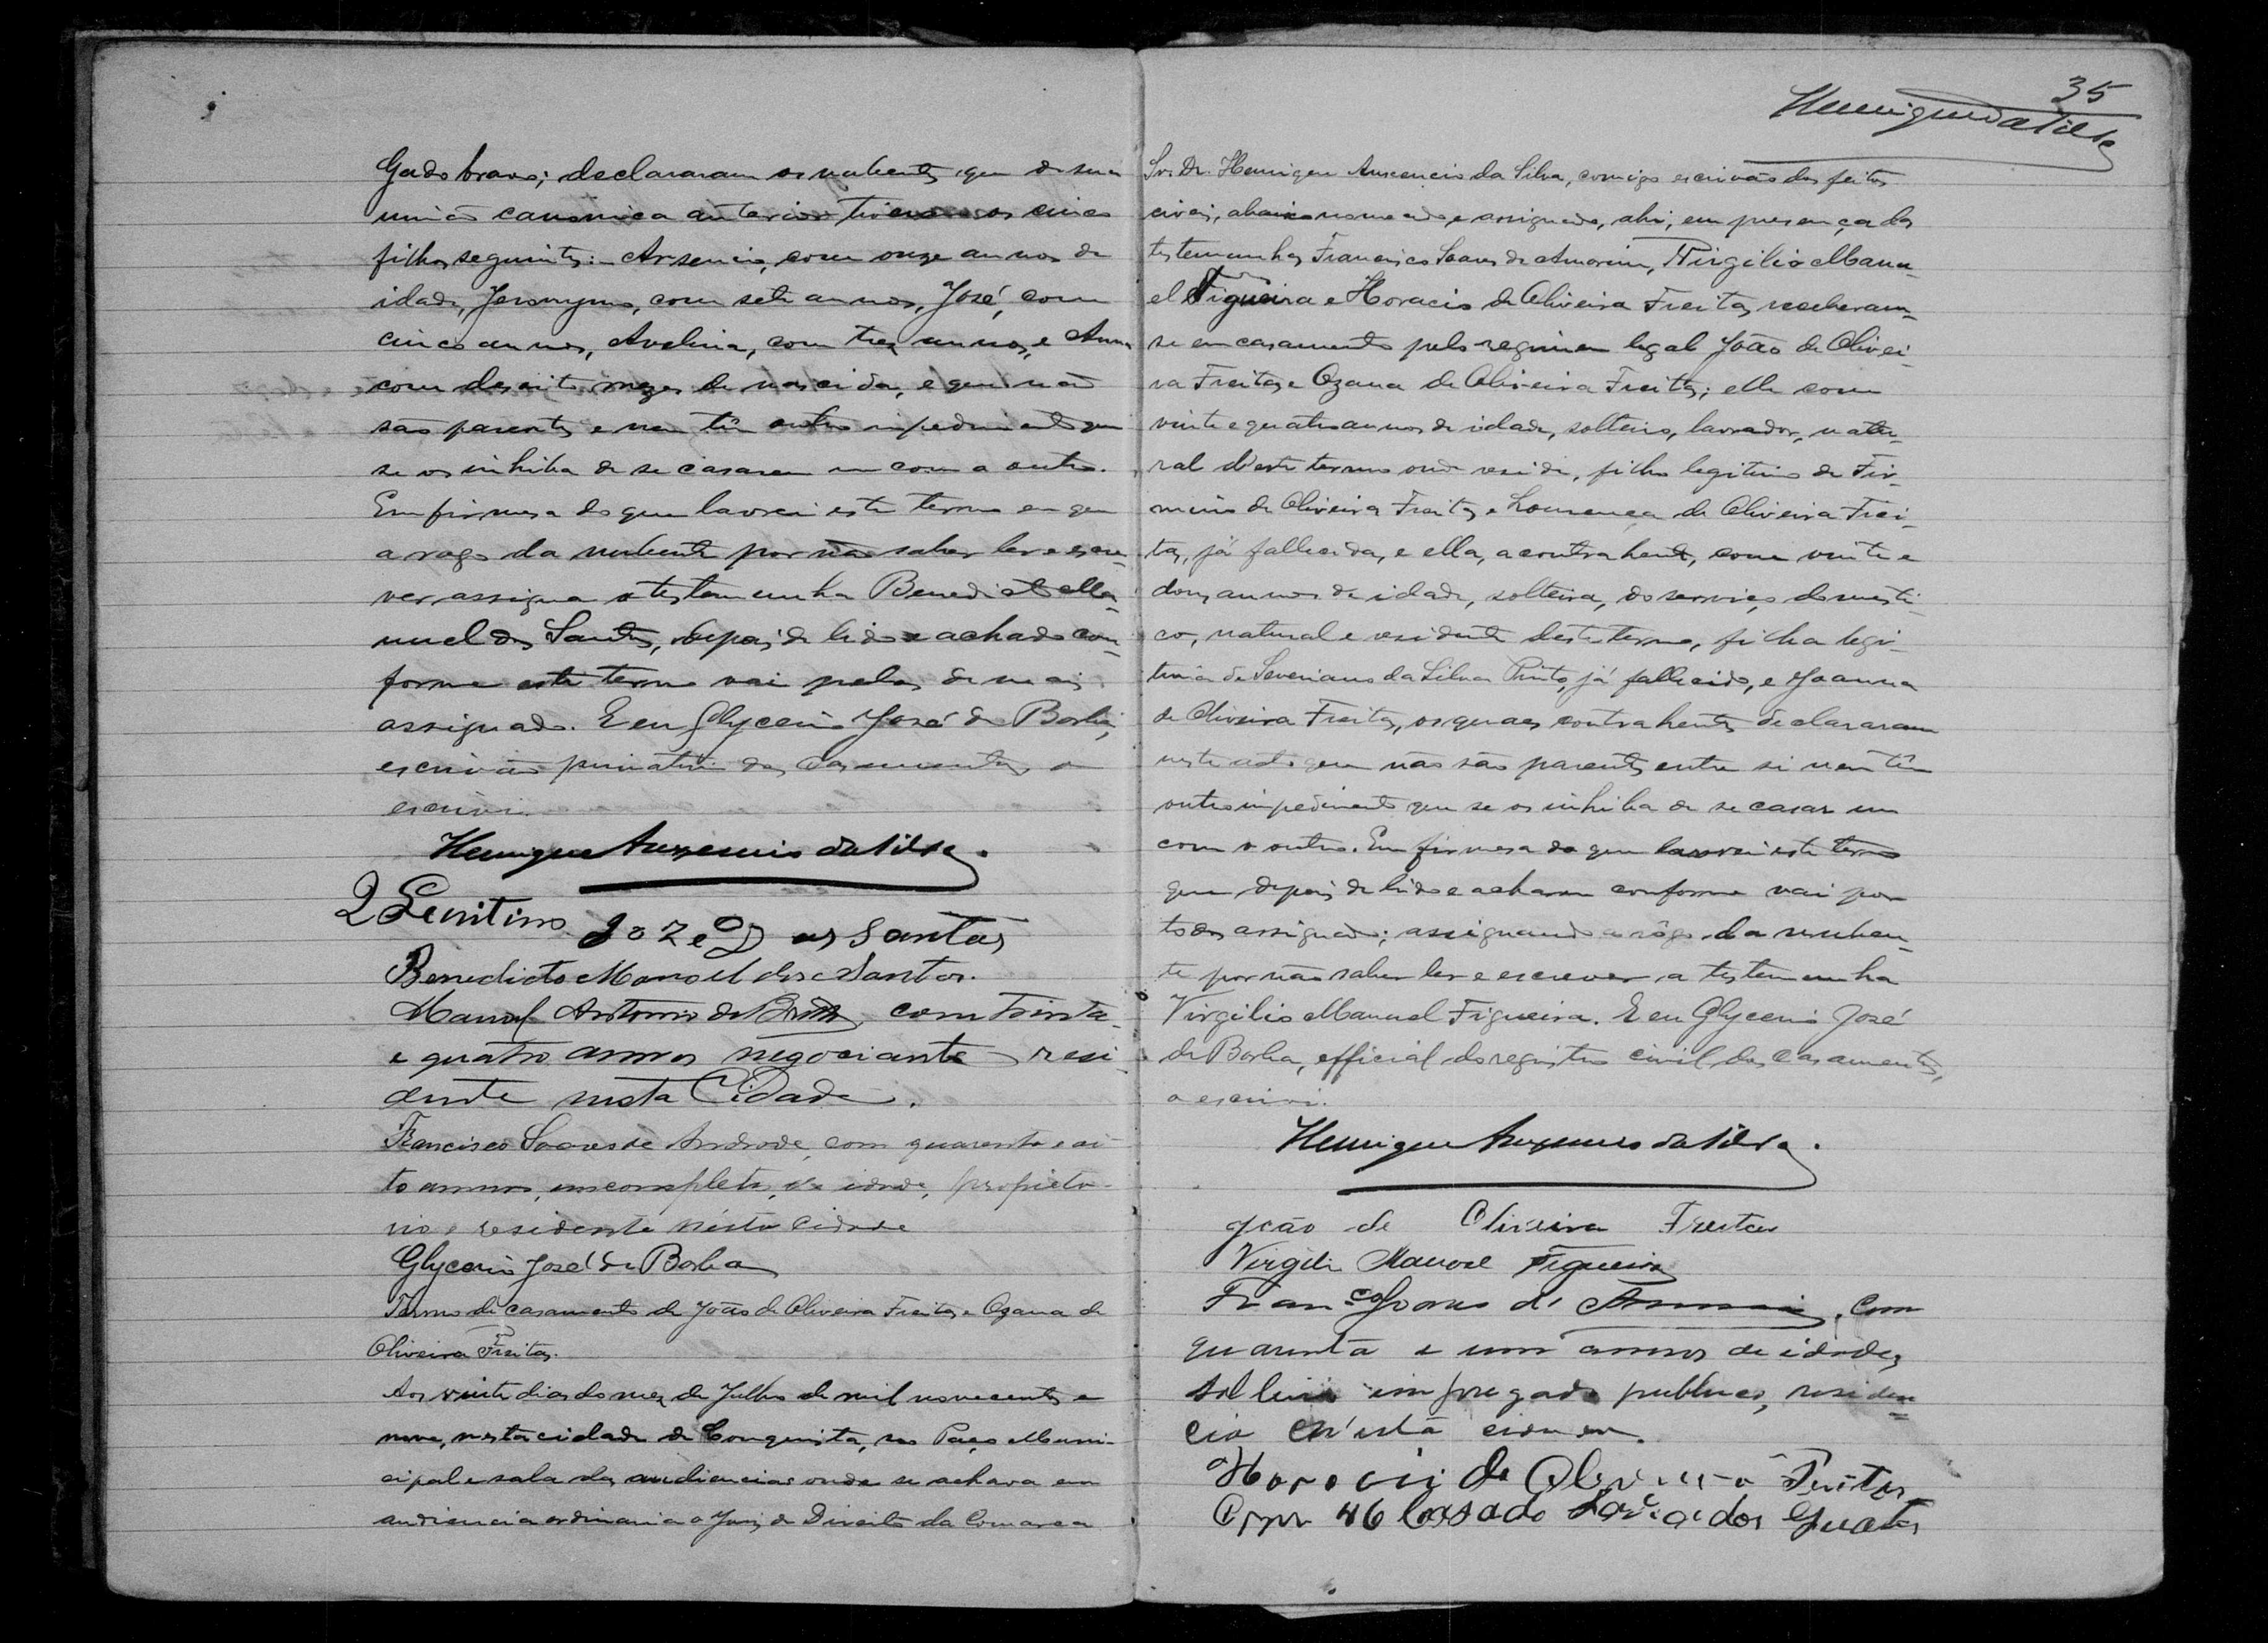 Gado bravo; declararam os nubentes que de sua
união canonica anterior tiveram os cinco
filhos seguintes: Arsenio, com onze annos de
idade, Jeronymo, com sete annos, José, com
cinco annos, Avelina, com tres annos, e Anna
com desoito mezes de nascida, e que não
são parentes e nem têm outro impedimento que
se os inhiba de se casarem um com a outro.
Em firmesa do que lavrei este termo em que
a rogo da nubente por não saber ler e escre-
ver assigna a testemunha Benedicto Ma-
nuel dos Santos, depois de lido e achado con-
forme este termo vai pelos demais
assignado. E eu Glycerio José de Borba,
escrivão privativo dos casamentos o
escrivi.
Henrique Auxencio da Silva.
Joze dos Santos
Benedicto Manoel dos Santos.
Manoel Antonio de Britto, com trinta
e quatro annos negociante resi-
dente nesta Cidade.
Francisco Soares de Andrade, com quarenta e oi-
to annos, incompletos, de idade, propieta-
rio, residente nésta cidade
Glycerio José de Borba
Termo de casamento de João de Oliveira Freitas e Ozana de
Oliveira Freitas.
Aos vinte dias do mez de Julho de mil novecentos e
nove, nesta cidade de Conquista, no Paço Muni-
cipal e sala das audiencias onde se achava em
audiencia ordinaria o Juiz de Direito da Comarca
35
Henrique da Silva
Snr. Dr. Henrique Auxencio da Silva, comigo escrivão dos feitos
civeis, abaixo nomeado e assignado, ahi, em presença das
testemunhas Francisco Soares de Amorim, Virgilio Manu-
el Figueira e Horacio de Oliveira Freitas, receberam-
se em casamento pelo regimen legal João de Olivei-
ra Freitas e Ozana de Oliveira Freitas; elle com
vinte e quatro annos de idade, solteiro, lavrador, natu-
ral d'este termo onde reside, filho legitimo de Fir-
mino de Oliveira Freitas e Lourença de Oliveira Frei-
tas, já fallecida, e ella, a contrahente, com vinte e
dous annos de idade, solteira, do serviço domesti-
co, natural e residente deste termo, filha legi-
tima de Severiano da Silva Pinto, já fallecido, e Joanna
de Oliveira Freitas, os quaes contrahentes declararam
neste acto que não são parentes entre si nem têm
outro impedimento que se os inhiba de se casar um
com o outro. Em firmesa do que lavrei este termo
que depois de lido e acharem conforme vai por
todos assignado; assignando a rôgo da nuben-
te por não saber ler e escrever a testemunha
Virgilio Manuel Figueira. E eu Glycerio José
de Borba, official do registro civil dos casamentos,
o escrivi.
Henrique Auxencio da Silva.
João de Oliveira Freitas
Virgilio Manoel Figueira
Fran.co Soares de Amorim, com
quarenta e um annos de idade,
solteiro impregado publico, residen-
cia n'esta cidade.
Horacio de Oliveira Freitas
46 Casado Lavrador